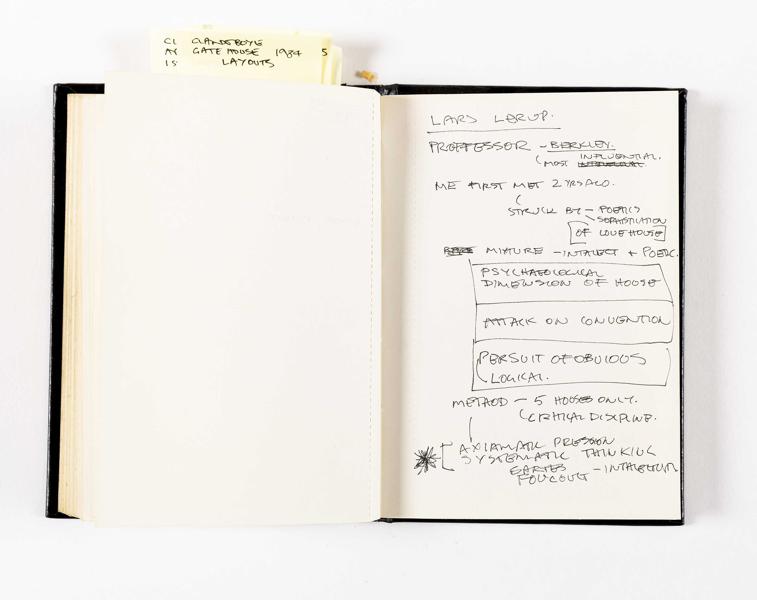 CL CLANDEBOYE
AY GATE HOUSE 1984 S
IS LAYOUTS
LARS LERUP.
PROFFESSOR - BERKLEY.
MOST INFLUENTIAL.
ME FIRST MET 2 YRS AGO.
STRUCK BY - POETICS
SOPHISTICATION
OF LOVE HOUSE
MIXTURE - INTALECT + POETIC.
PSYCHAEOLOGICAL
DIMENSION OF HOUSE
ATTACK ON CONVENTION
PERSUIT OF OBVIOUS
LOGICAL.
METHOD - 5 HOUSES ONLY.
CRITICAL DISCIPLINE.
AXIAMATIC PRESSION
SYSTEMATIC THINKING
- INTALECTUAL
FOUCOULT